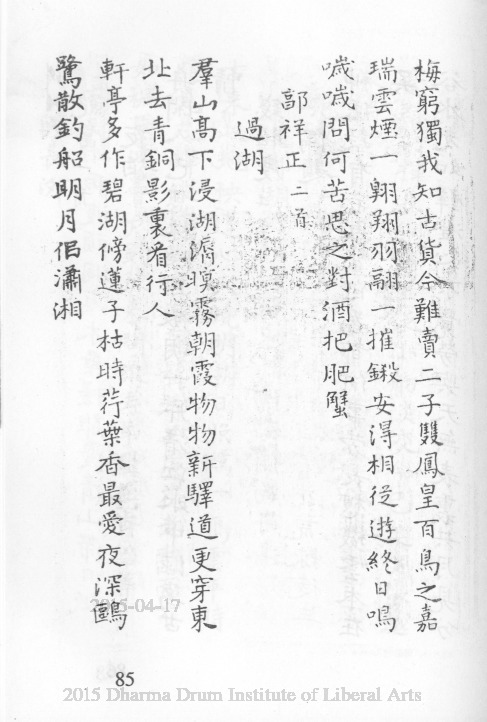 梅窮獨我知古貨今難賣二子雙鳳皇百鳥之嘉
瑞雲煙一翺翔羽翮一摧鎩安得相從遊終日鳴
噦噦問何苦思之對酒把肥蟹
郭祥正二首
過湖
羣山髙下浸湖漘暝霧朝霞物物新驛道更穿東
北去青銅影裏看行人
軒亭多作碧湖傍蓮子枯時荇葉香最愛夜深鷗
鷺散釣船明月侣瀟湘
2015-04-17
85
2015 Dharma Drum Institute of Liberal Arts